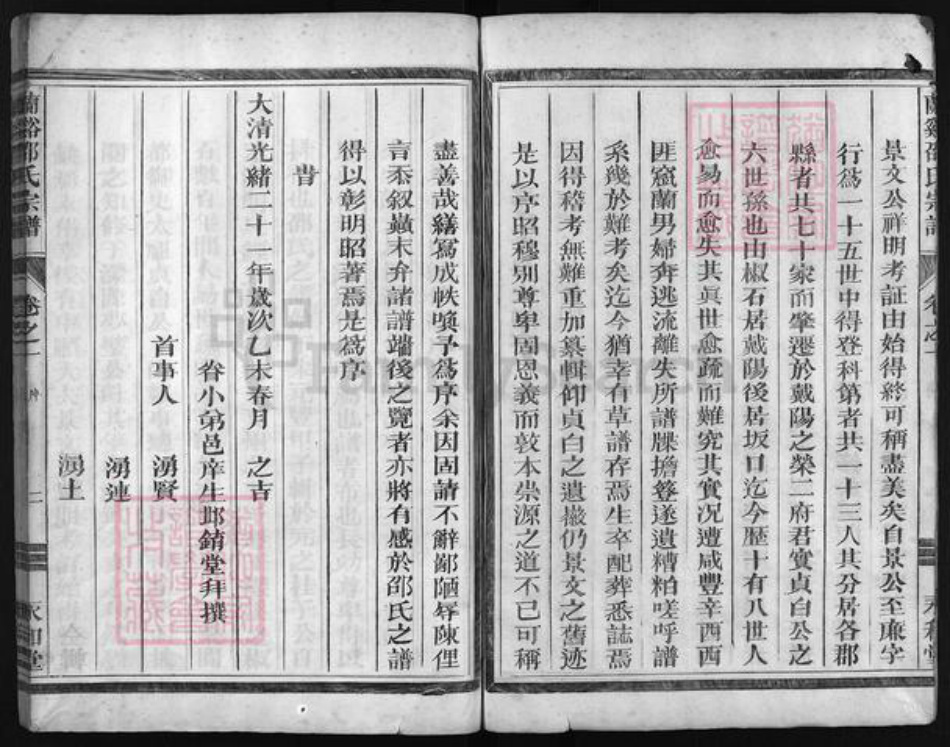 景文公祥明考証由始得終可稱盡美矣自景公至廉字
行爲一十五世中得登科第者共一十三人其分居各郡
縣者共七十家而肇遷於戴陽之榮二府君實貞白公之
六世孫也由椒石居戴陽後居坂口迄今歷十有八世人
愈易而愈失其眞世愈疏而難究其實況遭咸豐辛酉西
匪竄蘭男婦奔逃流離失所譜牒擔簦遂遺糟粕嗟呼譜
系幾於難考矣迄今猶幸有草譜存焉生卒配葬悉誌焉
因得稽考無難重加纂輯仰貞白之遺徽仍景文之舊迹
是以序昭穆別尊卑固恩義而敦本崇源之道不已可稱
蘭谿邵氏宗譜 卷之一 永和堂
盡善哉繕寫成帙喚予爲序余因固請不辭鄙陋辱陳俚
言忝叙巔末弁諸譜端後之覽者亦將有感於邵氏之譜
得以彰明昭著焉是爲序
旹
大清光緒二十一年歲次乙未春月 之吉
眷小弟邑庠生邺銷堂拜撰
首事人 湧賢
湧連
湧土
蘭谿邵氏宗譜 卷之一 永和堂
FamilySearch